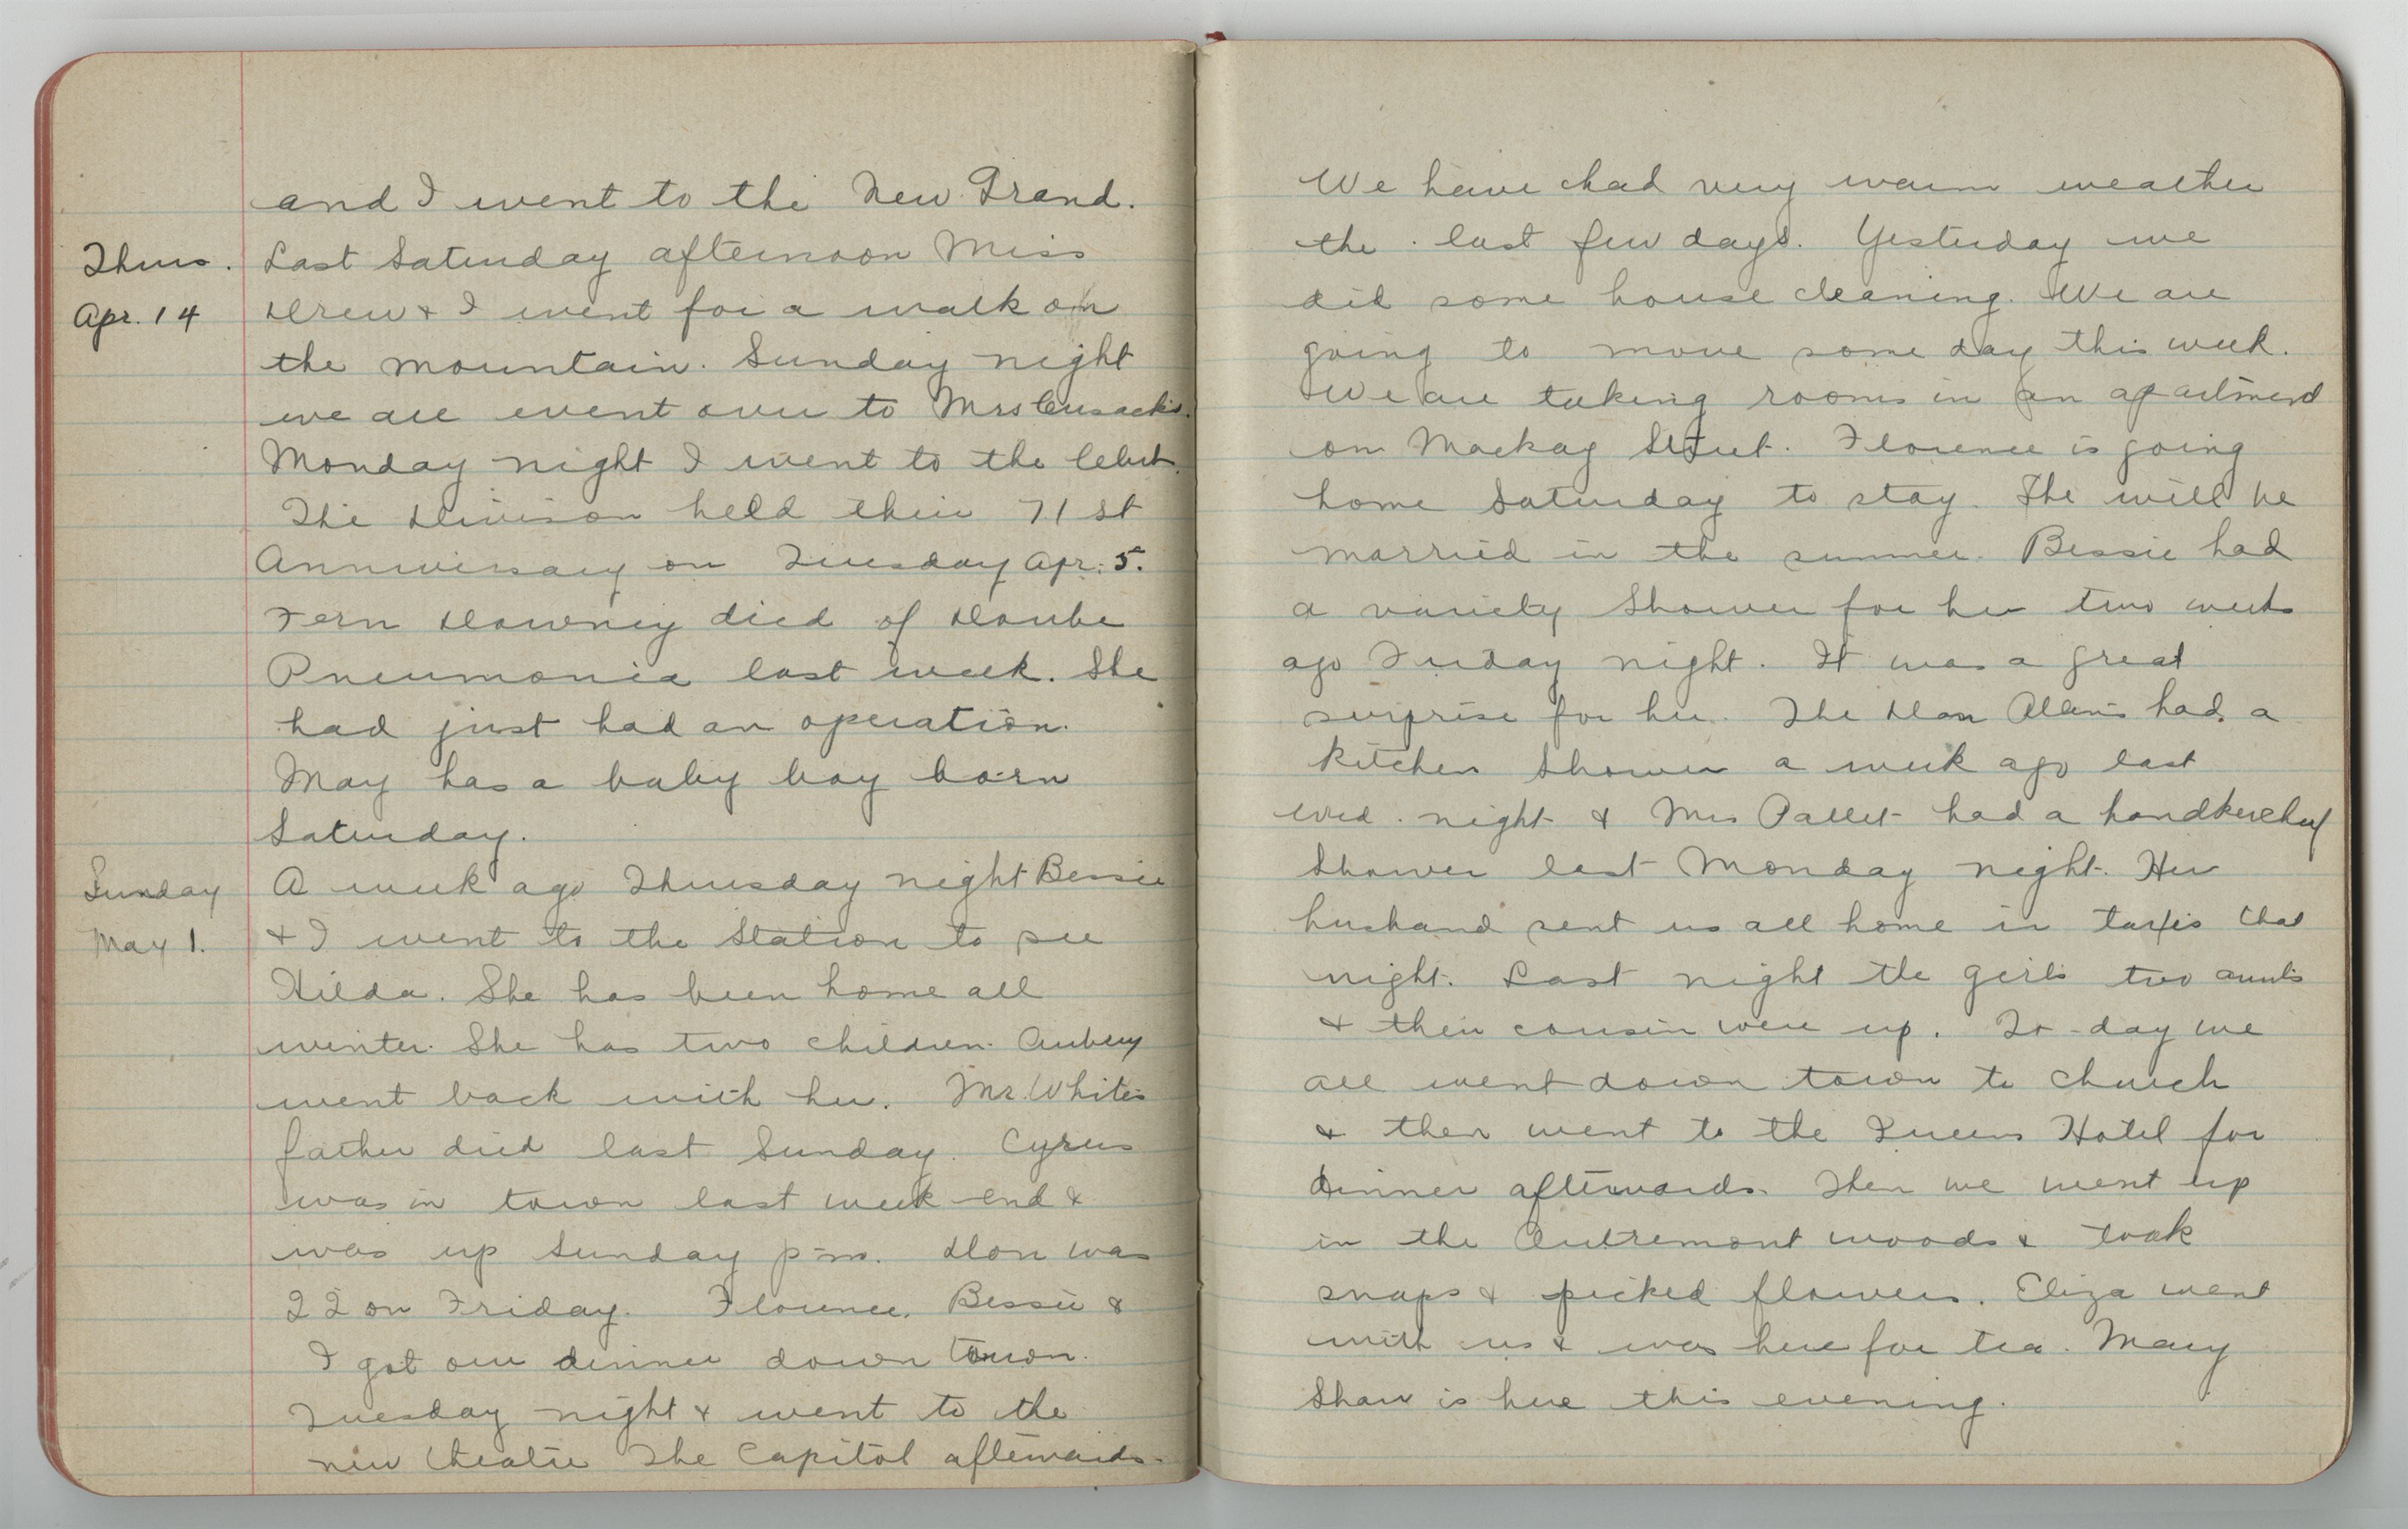 and I went to the New Grand.
Thurs. Last Saturday afternoon Miss
Apr. 14 Drew & I went for a walk on
the mountain. Sunday night
we all went over to Mrs Cusack's.
Monday night I went to the Club.
The Division held their 71st
Anniversary on Tuesday Apr. 5.
Fern Downey died of Double
Pneumonia last week. She
had just had an operation.
May has a baby boy born
Saturday.
Sunday A week ago Thursday night Bessie
May 1. & I went to the Station to see
Hilda. She has been home all
winter. She has two children. Aubery
went back with her. Mr. White's
father died last Sunday. Cyrus
was in town last week-end &
was up Sunday p-m. Don was
22 on Friday. Florence, Bessie &
I got our dinner down town
Tuesday night & went to the
new theatre The Capitol afterwards.
We have had very warm weather
the last few days. Yesterday we
did some house cleaning. We are
going to move some day this week.
We are taking rooms in an apartment
on Mackay Street. Florence is going
home Saturday to stay. She will be
married in the summer. Bessie had
a variety shower for her two weeks
ago Friday night. It was a great
surprise for her. The Don Allans had a
kitchen shower a week ago last
Wed. night & Mrs Pallet had a handkerchief
shower last Monday night. Her
husband sent us all home in taxis that
night. Last night the girls two aunts
& their cousin were up. To-day we
all went down town to church
& then went to the Queens Hotel for
dinner afterwards. Then we went up
in the Outremont woods & took
snaps & picked flowers. Eliza went
with us & was here for tea. Mary
Shaw is here this evening.